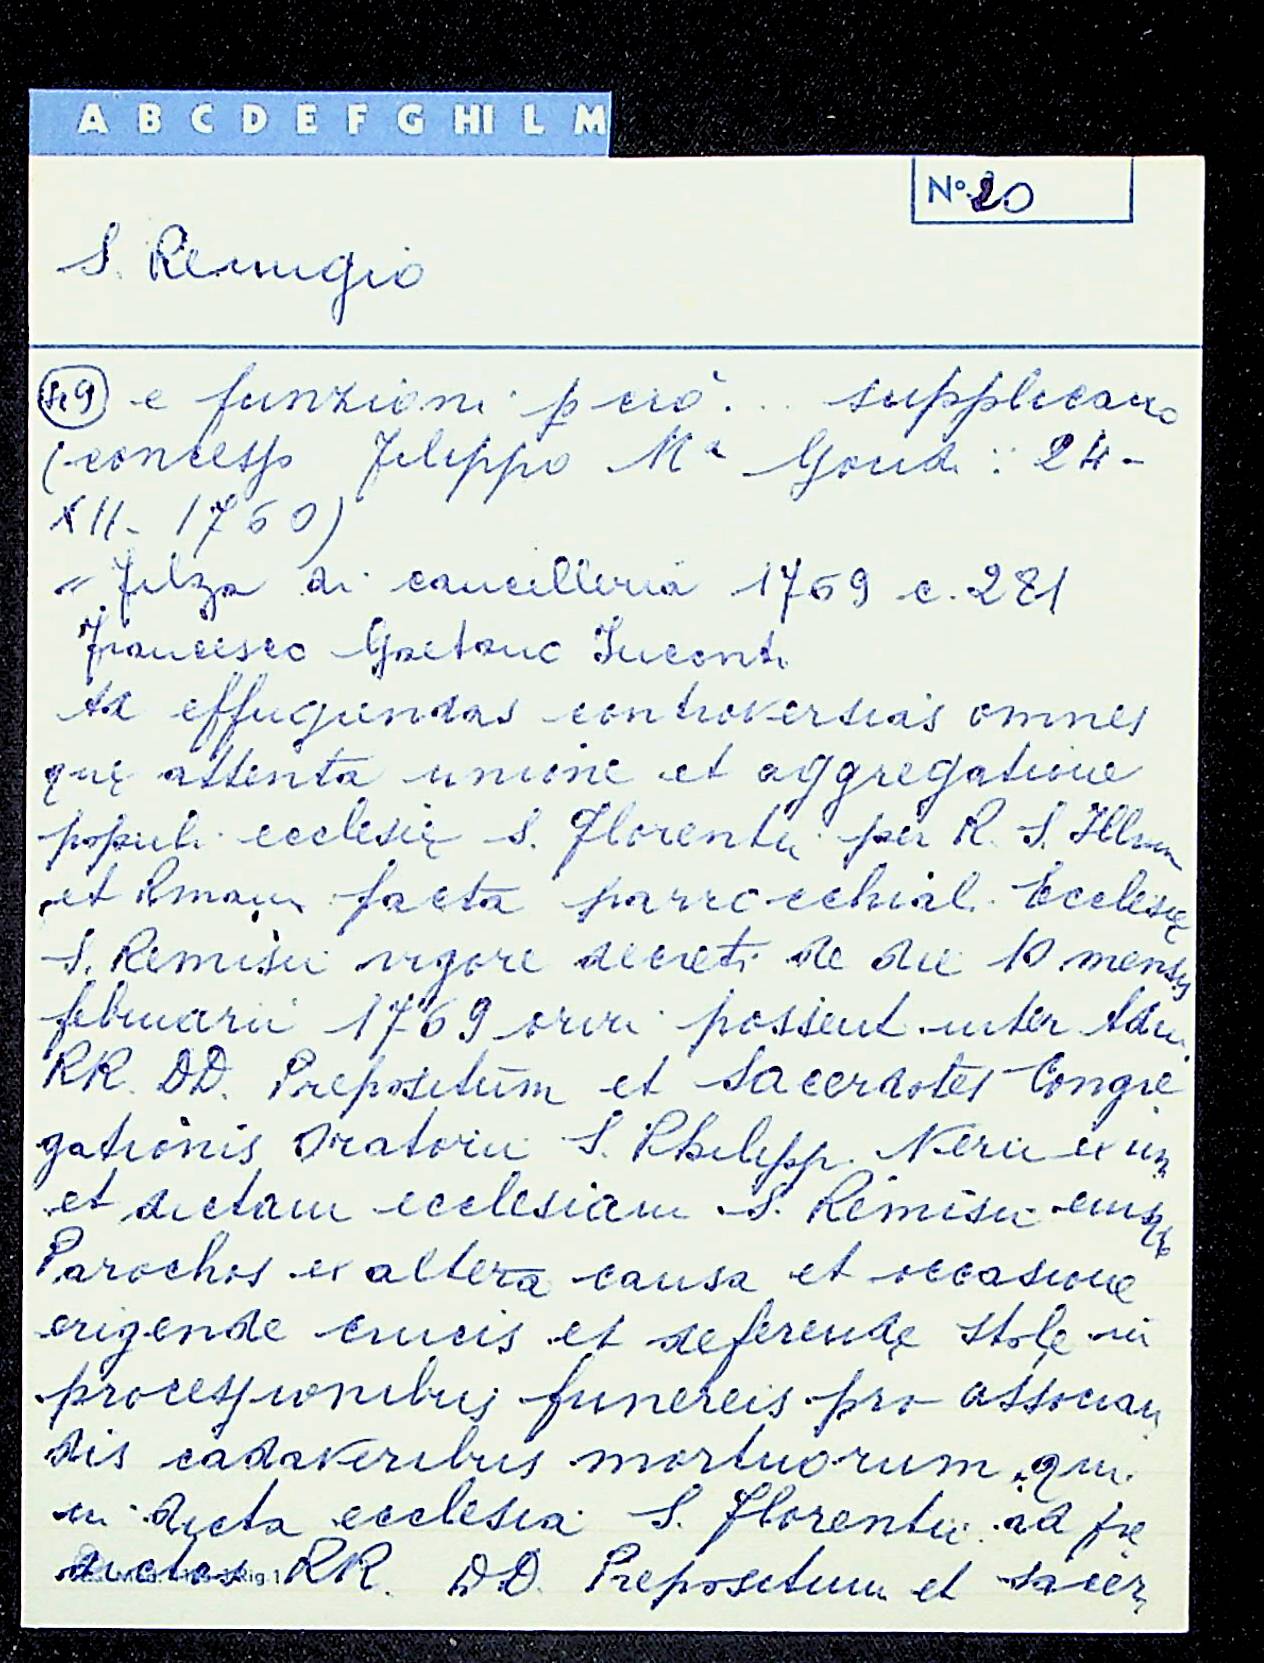 A B C D E F G HI L M
N° 20
S. Remigio
e funzioni però... supplicano
(concesso Filippo Mª Gondi: 24-
XII- 1760)
" Filza di cancelleria 1769 c. 281
Francesco Gaetano Incontri
Ad effugiendas controversias omnes
quę attenta unione et aggregatione
populi ecclesię S. Florentii per R. S. Illm
et Rmam facta parrocchiali Ecclesię
S. Remisii vigore decreti de die 10 mensis
februarii 1769 oriri possent inter Adm.
RR. DD. Prepositum et Sacerdotes Congre
gationis Oratorii S. Philippi Nerii ex un
et dictam ecclesiam S. Remisii eiusq
Parochos ex altera causa et occasione
erigende crucis et deferendę stolę in
processionibus funereis pro associan
dis cadaveribus mortuorum qui
in dicta ecclesia S. Florentii ad prę
dictos RR. DD. Prepositum et sacer